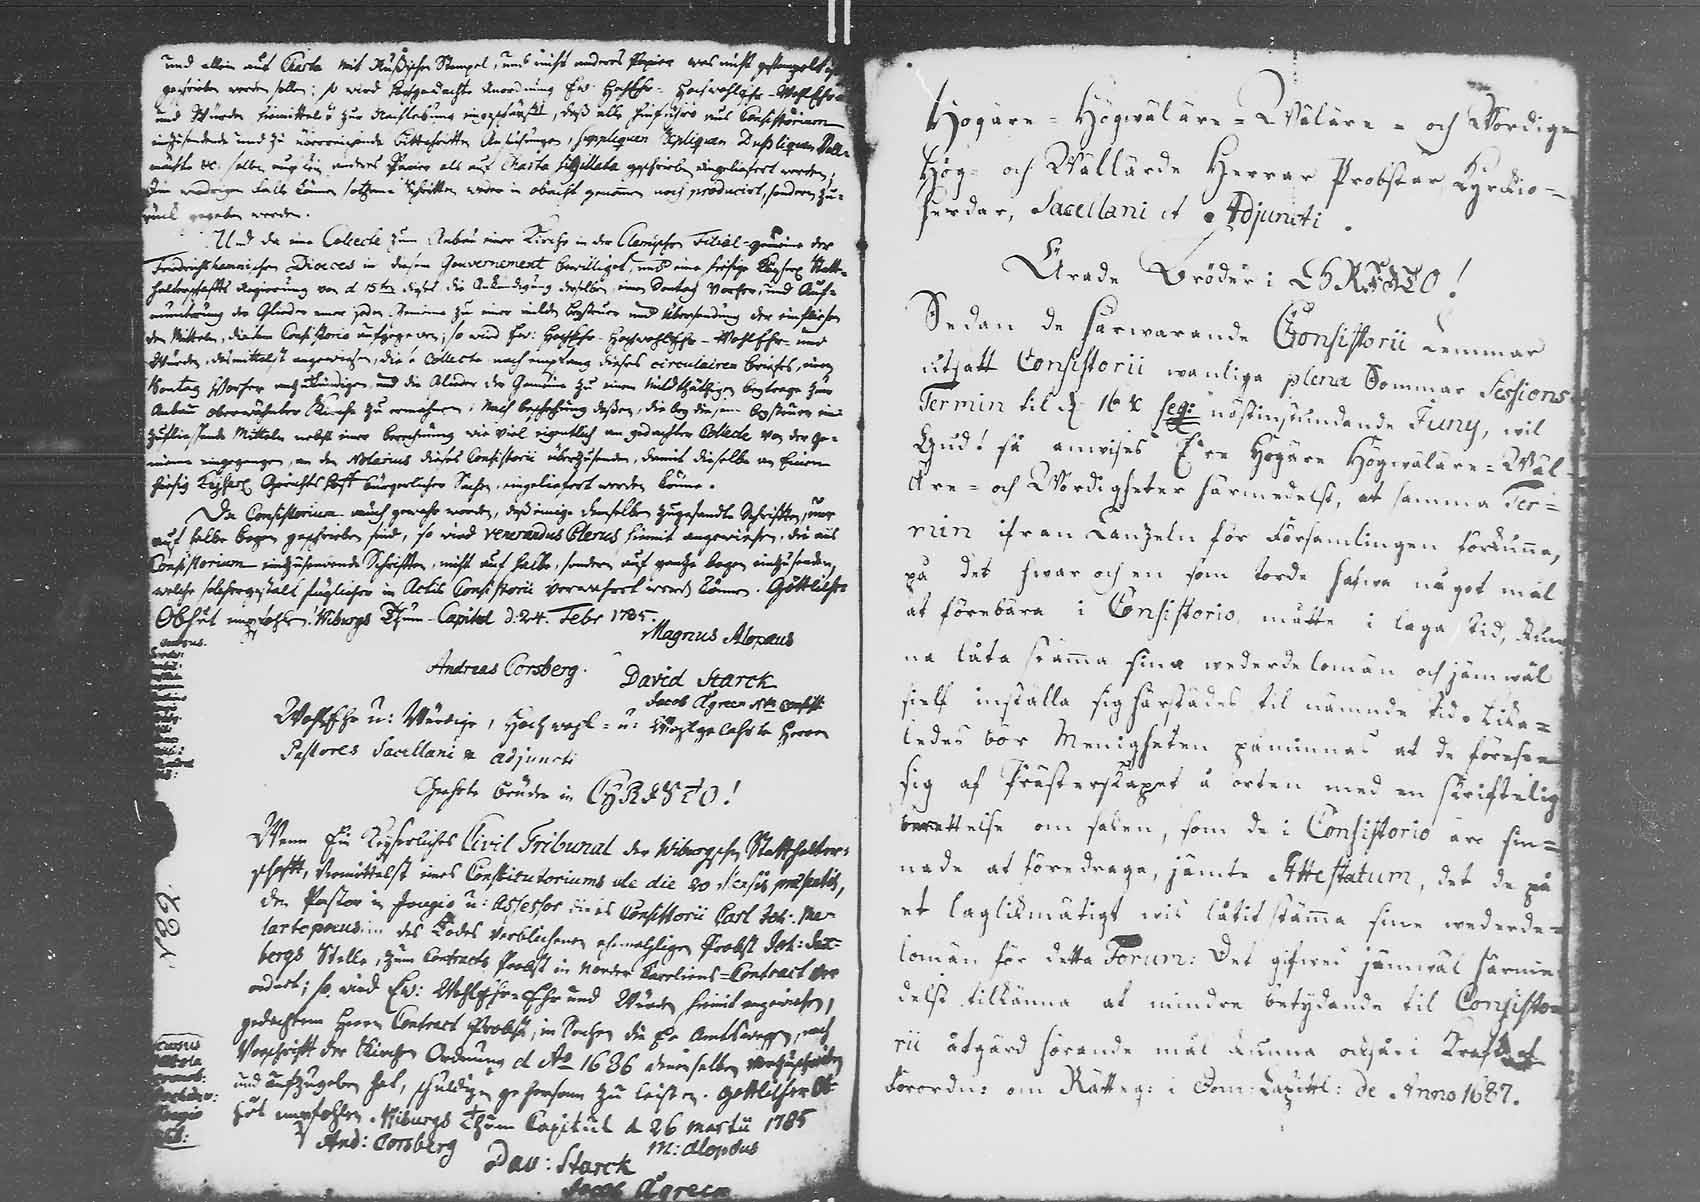 und allein auf Charta mit Rußischen Stempel, und nicht anders Papier was nicht gestempelt
geschrieben werden sollen; so wird Hochgedachte Anordnung Ew: HochEhr- Hochwohlehr- WohlEhr-
und Würden hiemittelst zur Nachlebung eingeschärft, daß alle hinführo aus Consistorium
einzusendende und zu Bittschriften Ansuchungen, Suppliquen Repliquen Dupliquen Voll-
machte &c. sollen auf kein anders Papier als auf Charta Sigillata geschrieben eingeliefert werden;
Im wiedrigen Falle können solche Schriften weder in obacht genommen noch producirt, sondern zu-
rück gegeben werden.
Und da eine Collecte zum Anbau einer Kirche in der Filial-gemeine der
Friedrichshamnschen Dioeces in diesem Gouvernement bewilliget, und eine hiesige Kayserl Statt-
halterschafts Regierung von d 15ten dieses die Ankündigung derselben, einen Sontag Vorher, und Auf-
munterung der Glieder einer jeden Gemeine zu einer milden beysteuer und Übersendung der einfließen-
den Mitteln, diesem Consistorio aufgegeben; so wird Ew: HochEhr- Hochwohlehr- WohlEhr- und
Würden, desmittelst angewiesen, diese Collecte nach empfang dieses circulairen briefes, einen
Sontag Vorher anzukündigen, und die Glieder der Gemeine zu einem mildthätigen beytrage zum
Anbau oberwähnter Kirche zu ermahnen; Nach beschehung deßen, die bey diesem beysteuer ein-
zufließende Mitteln nebst einer berechnung wie viel eigentlich an gedachter Collecte von der Ge-
meine eingegangen, an den Notarius dieses Consistorii überzusenden, damit dieselbe an Einem
hiesig Kayserl Gerichtshoff bürgerlicher Sachen, eingeliefert werden könne.
Da Consistorium auch gewahr worden, daß einige demselben zugesandte Schrifften, nur
auf halbe bogen geschrieben sind, so wird venerandus Clerus hiemit angewiesen, die ans
Consistorium einzusendende Schriften, nicht auf halbe, sondern auf gantze bogen einzusenden,
welche solchergestalt füglicher in Actis Consistorii verwahret werd können. Göttlicher
Obhut empfohlen. Wiburgs Thum-Capitel d: 24. Febr 1785.
Magnus Alopæus
Andreas Corsberg.
David Starck
Jacob Ågreen Not: Consist:
WohlEhr u: Würdige, Hochwohl- u: Wohlgelahrte Herren
Pastores Sacellani & adjuncti
Geehrte Brüder in CHRISTO!
Wenn Ein Kayserliches Civil Tribunal der Wiburgschen Statthalter-
schafft, Vermittelst eines Constitutoriums de die 20 Mensis præsentis,
den Pastor in Jougio u: Assessor dieses Consistorii Carl Joh: Me-
lartopæus in des Todes Verblichenen ehemahligen Probst Joh:
bergs Stelle, zum Contracts Probst in Norder Kareliens-Contract ver
ordnet; so wird Ew: Wohlehr-Ehr und Würden hiemit angewiesen,
gedachtem Herrn Contract Probst, in Sachen die Er Amtswegen, nach
Vorschrifft der Kirchen Ordnung d Ao 1686 denenselben vorzuschreiben
und aufzugeben hat, schuldigen gehorsam zu leisten. Göttlicher Ob-
hut empfohlen. Wiburgs Thum Capitul d 26 martii 1785
And: Corsberg M: Alopæus
Dav: Starck
Jacob Ågreen
N 89.
Högäre- Högwälärde- Wälärde- och Wördige
Hög- och Wällärde Herrar Probstar Kyrckio-
herdar, Sacellani et Adjuncti.
Ärade Bröder i CHRISTO!
Sedan de härwarande Consistorii Lemmar
utsatt Consistorii wanliga plena Sommar Sessions
Termin til d: 16 & seq: nästinstundande Juny, wil
Gud! så anwises E're Högäre Högwälärde- Wäl-
äre- och Wördigheter härmedelst, at samma Ter-
min ifran Canzeln för Församlingen forkunna,
på det hwar och en som torde hafwa något mål
at förebära i Consistorio, måtte i laga tid, kun-
na låta stämma sina wederdeloman och jämwäl
sielf inställa sig härstädes til nämnde tid. Lika-
ledes bör Menigheten påminnas at de förese
sig af Prästerskapet å orten med en skriftelig
berättelse om saken, som de i Consistorio äre sin-
nade at föredraga, jämte Attestatum, det de på
et laglikmätigt wis låtit stämma sine wederde-
lomän för detta Forum: Det gifwes jämwäl härme
delst tilkänna at mindre betydande til Consisto-
rii åtgärd hörande mål kunna också i Kraft af
Förordn: om Rätteg: i Dom-Capitel: de Anno 1687.